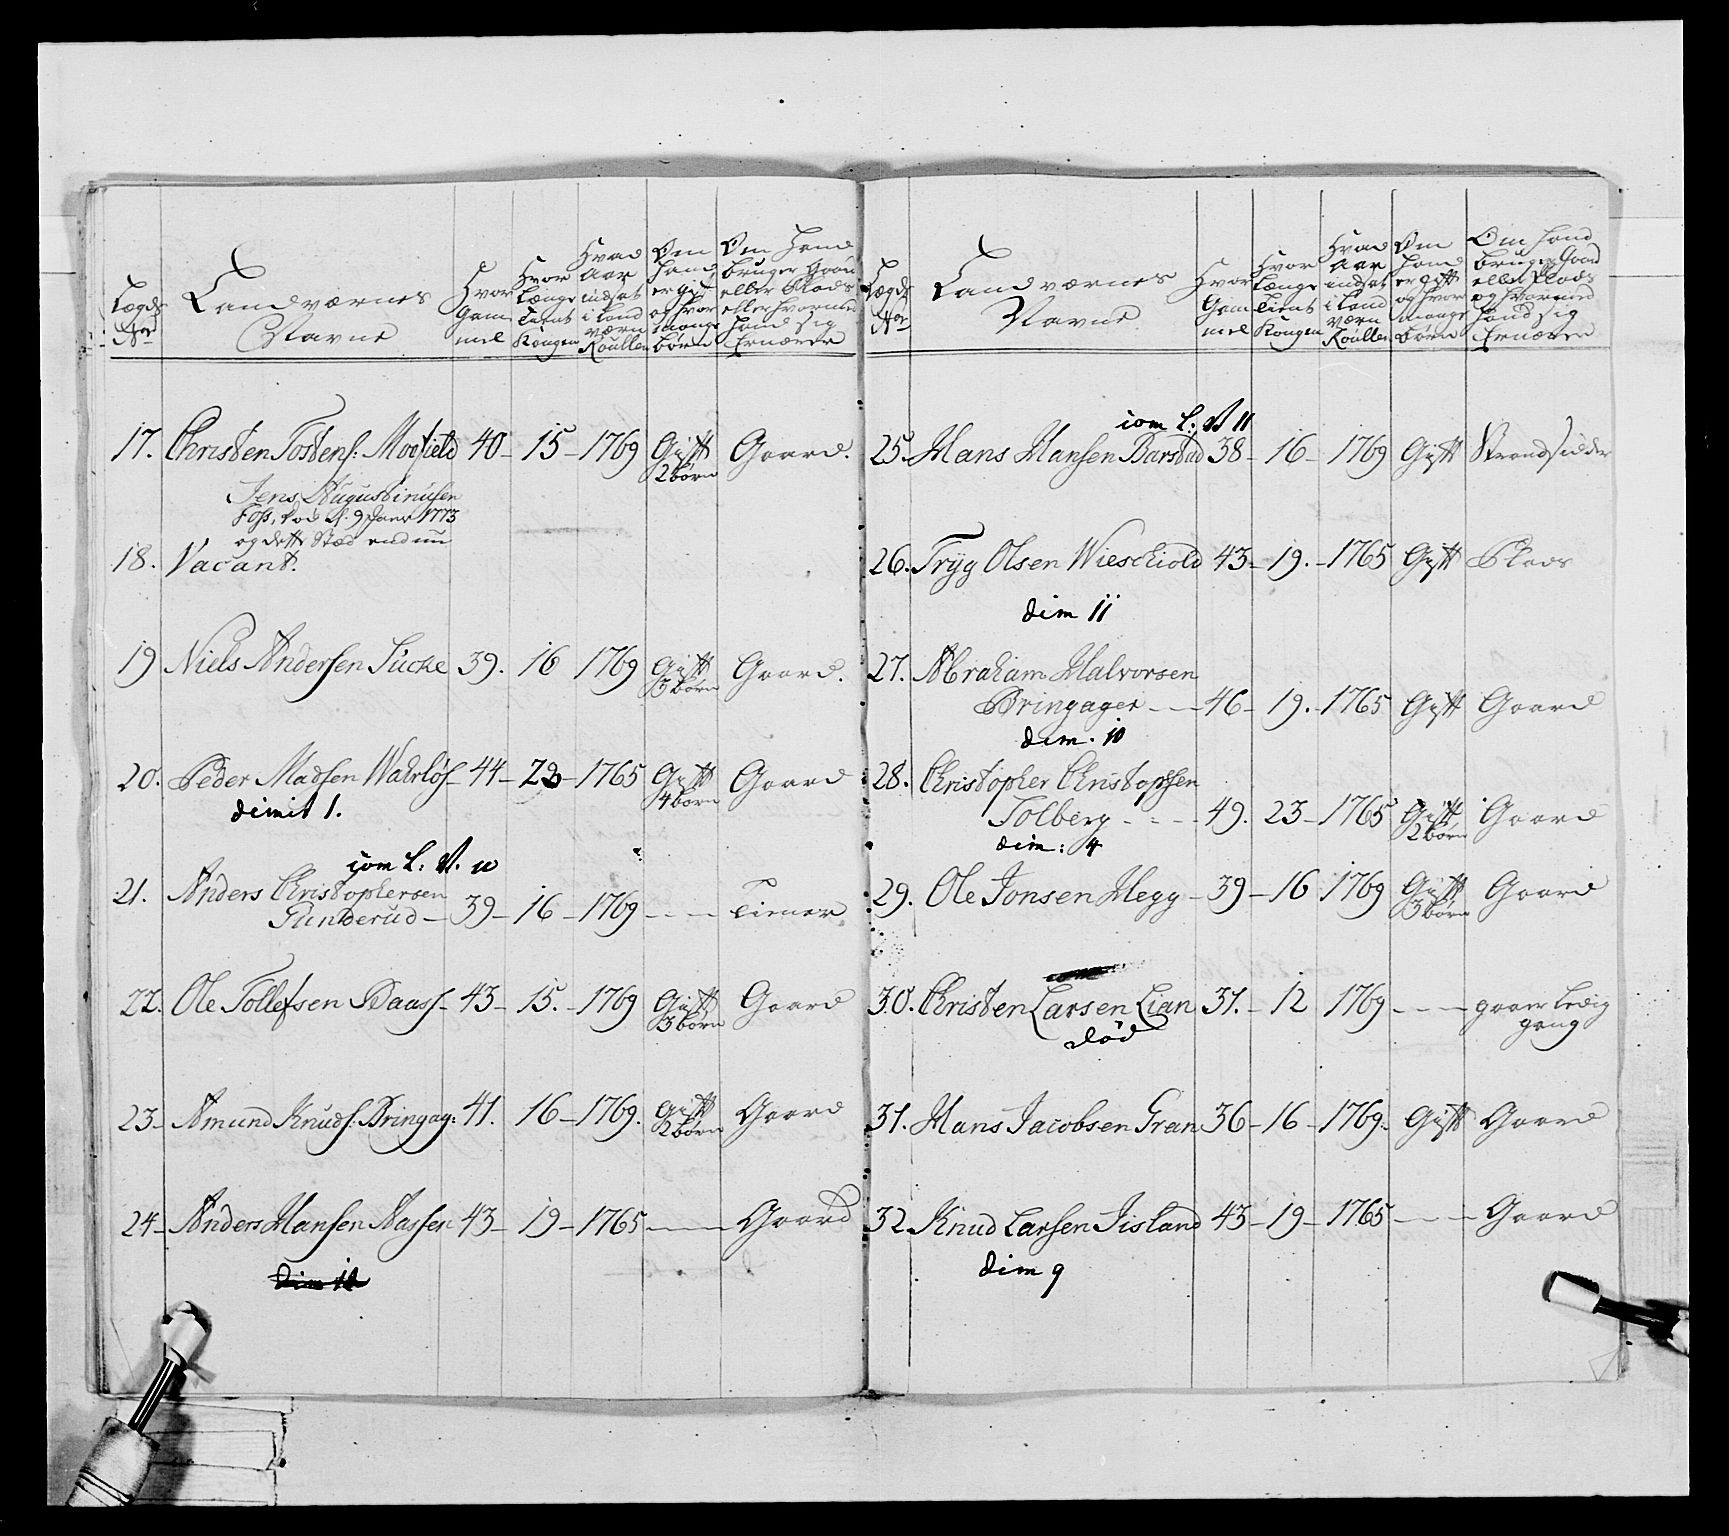 Lægds No
Landværnes Navne
Hvor Gammel
Hvor længe tient Kongen
Hvad Aar indsat i Land værn Roullen
Om hand er gift og hvor mange børn
Om hand bruger Gaard eller Plads eller hvormed hand sig Ernærer
17. Christen Tostens: Moefield 40 - 15 - 1769 Gift 2 børn Gaard.
Jens Augustinusen
Foss, død d. 9 Janv 1773
og dette Stæd endnu
18. Vacant.
19 Niels Andersen Sücke 39. 16 1769 Gift 3 børn Gaard.
20. Peder Madsen Wahrløs - 44 - 23 - 1765 Gift 4 børn Gaard
dimit 1.
som L: V. 11
21. Anders Christophersen
Sunderud - 39 - 16 - 1769 - - - Tiener
22. Ole Tollefsen Baass - 43 - 15. - 1769 Gift 3 børn Gaard
23 - Amund Knuds: Bringag: 41. 16 - 1769. Gift 2 børn Gaard
24 - Anders Hansen Aasser 43 - 19 - 1765 - - Gaard
dim 10
Lægds No
Landværnes Navne
Hvor Gammel
Hvor længe tient Kongen
Hvad Aar indsat i Land værn Roullen
Om hand er gift og hvor mange børn
Om hand bruger Gaard eller Plads og hvormed hand sig Ernærer
som L: V 11
25. Hans Hansen Barstad 38 - 16 - 1769 Gift Strandsidder
26. Tryg Olsen Wieschiold 43 - 19. - 1765 Gift Plads
dim 11
27. Abraham Halvorsen
Bringager - - 46 - 19. - 1765 Gift Gaard
dim. 10
28. Christopher Christophsen
Tolberg - - - 49. 23 - 1765 Gift 2 børn Gaard
dim: 4
29. Ole Jonsen Hegg - 39 - 16 1769 Gift 3 børn Gaard
30. Christen Larsen Lian 31. - 12 1769 - - - gaaer ledig gang
død
31. Hans Jacobsen Gran 36 - 16 - 1769. Gift Gaard
32 Knud Larsen Iisland 43 - 19 - 1765 - - - Gaard
dim 9